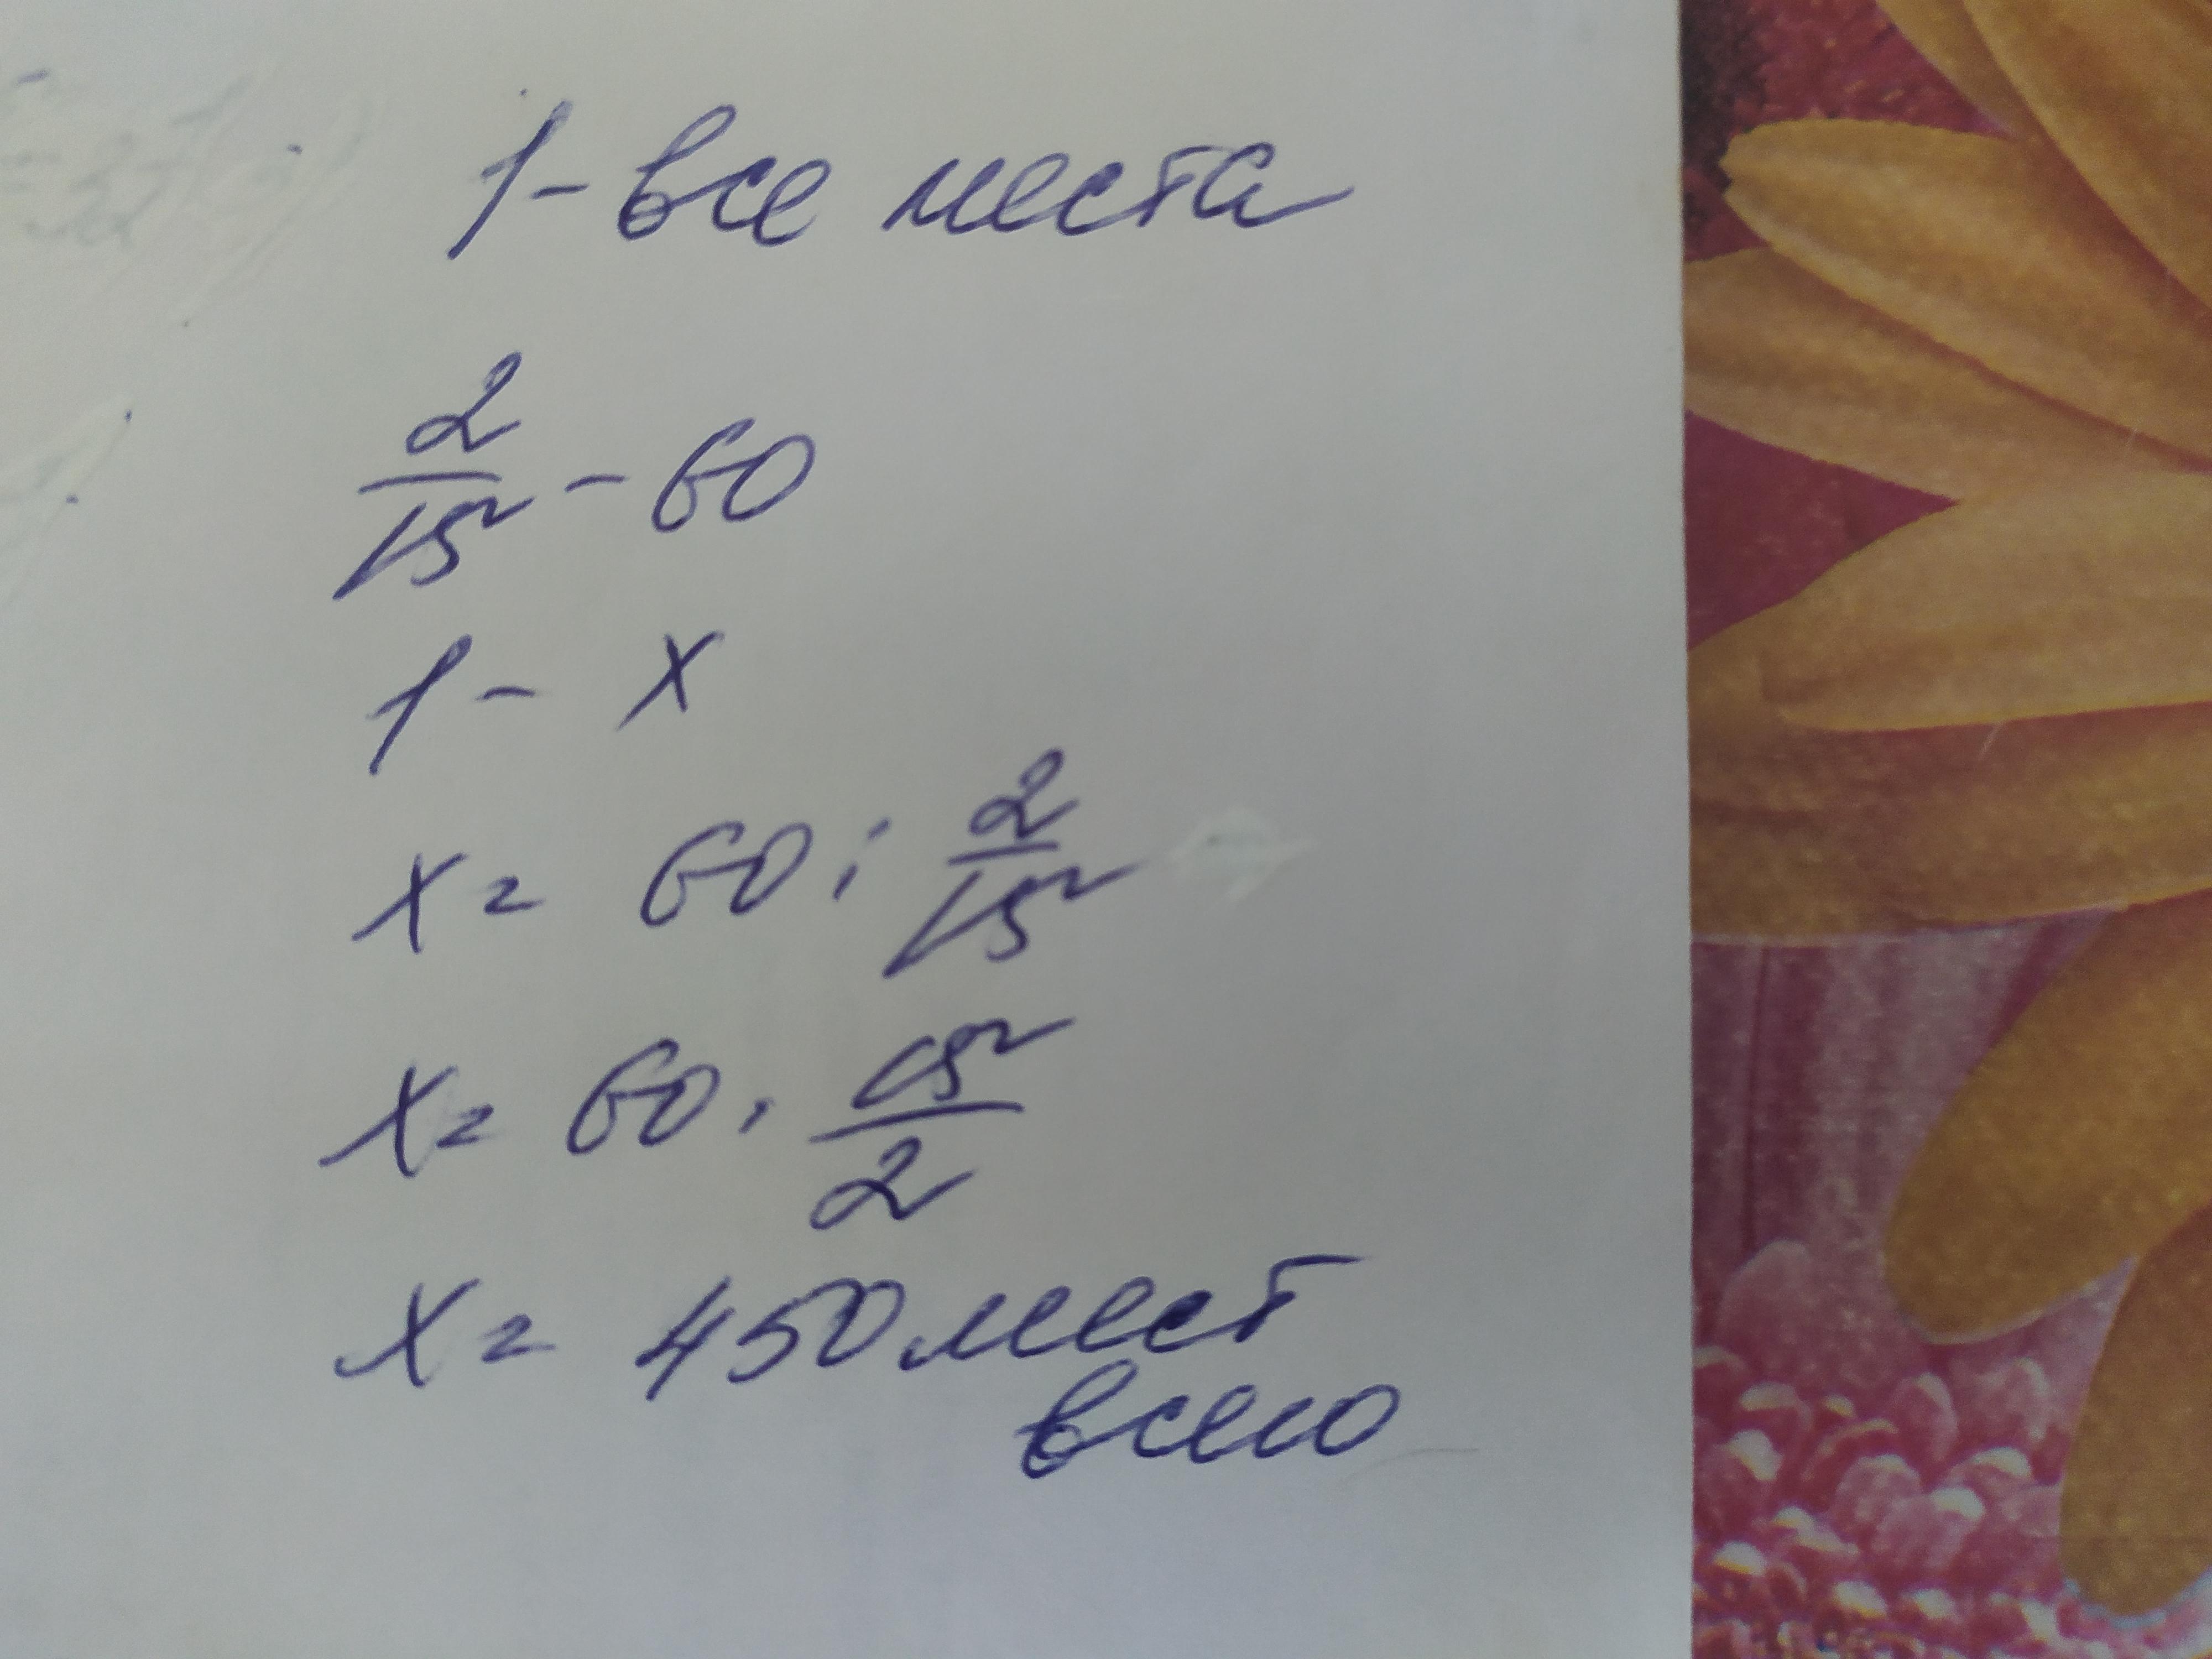 1 - все места
2/15 - 60
1 - x
x = 60 : 2/15
x = 60 · 15/2
x = 450 мест
всего